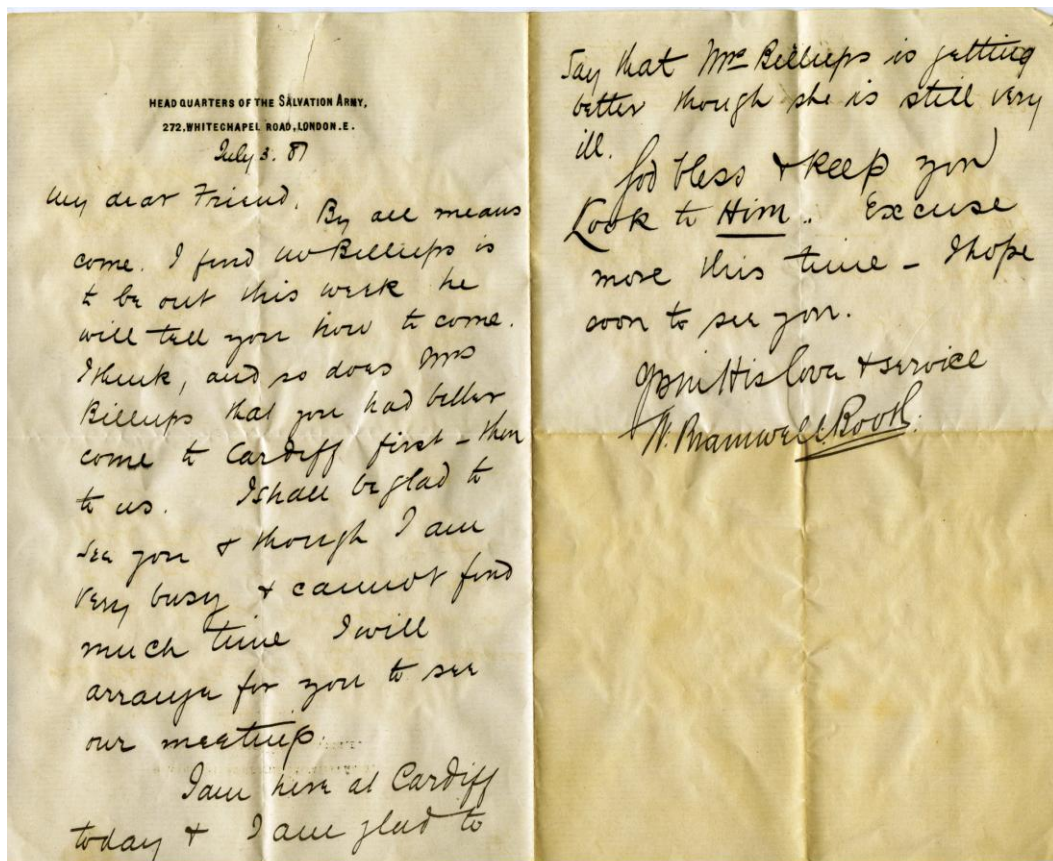 HEAD QUARTERS OF THE SALVATION ARMY,
272, WHITECHAPEL ROAD, LONDON. E.
July 3. 81
My dear Friend.
By all means
come. I find Mr Billups is
to be out this week he
will tell you how to come.
I think, and so does Mrs
Billups that you had better
come to Cardiff first – then
to us. I shall be glad to
see you & though I am
very busy & cannot find
much time I will
arrange for you to see
our meetings.
I am here at Cardiff
today & I am glad to
say that Mrs Billups is getting
better though she is still very
ill.
God bless & keep you
Look to Him. Excuse
more this time – I hope
soon to see you.
in His love & service
W. Bramwell Booth.